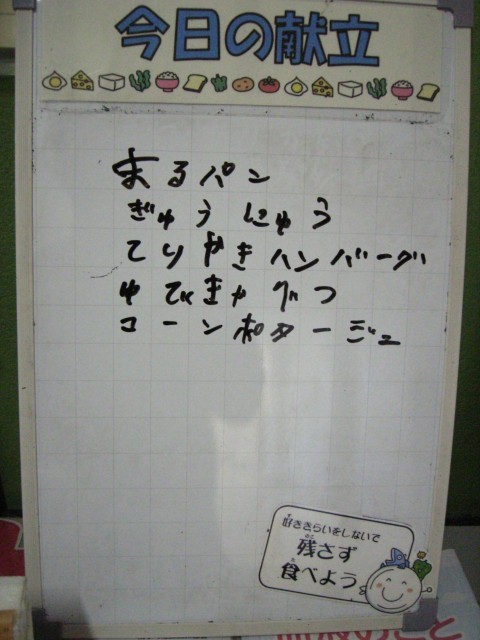 今日の献立
まるパン
ぎゅうにゅう
てりやきハンバーグ
ゆでキャグつ
コーンポタージュ
好ききらいをしないで
残さず
食べよう